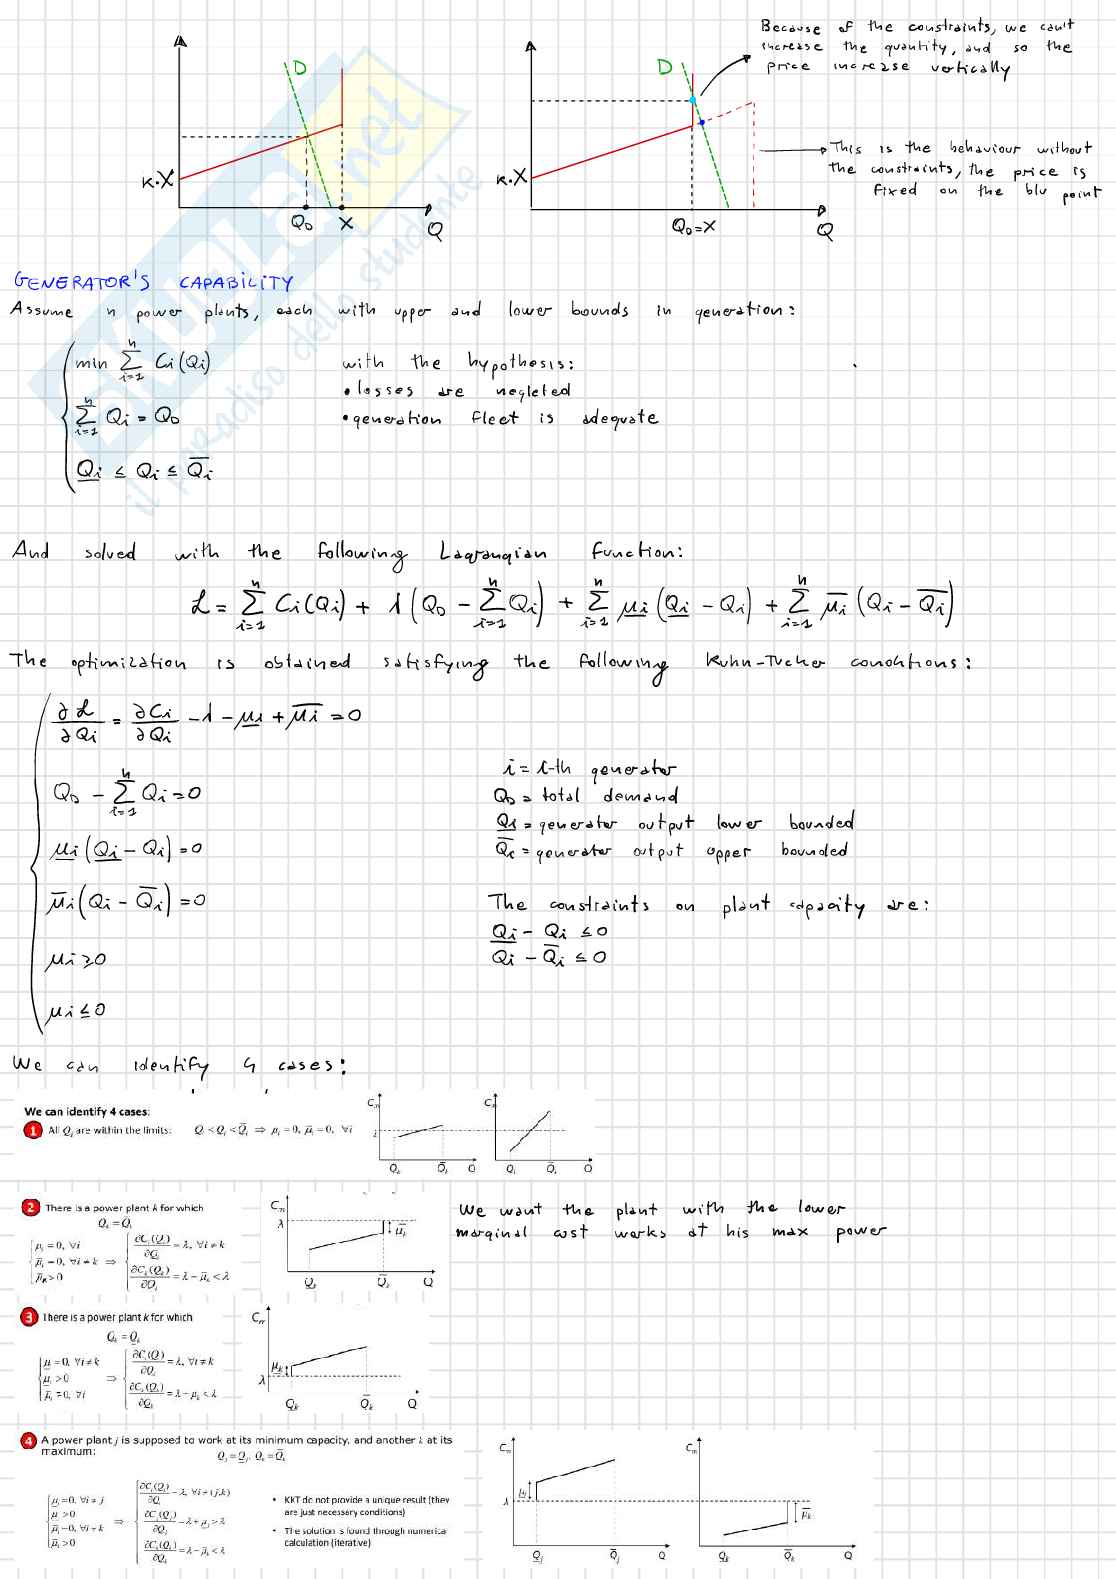 Because of the constraints, we can't
increase the quantity, and so the
price increase vertically
D
D
This is the behaviour without
the constraints, the price is
fixed on the blu point
K·X
K·X
Q_D X Q
Q_D=X Q
SKUOLA.net
il paradiso dello studente
GENERATOR'S CAPABILITY
Assume n power plants, each with upper and lower bounds in generation:
min Σ_{i=1}^{n} Ci(Qi)
with the hypothesis:
• losses are negleted
Σ_{i=1}^{n} Qi = Q_D
• generation fleet is adequate
Q̲i ≤ Qi ≤ Q̅i
And solved with the following Lagrangian function:
ℒ = Σ_{i=1}^{n} Ci(Qi) + λ(Q_D - Σ_{i=1}^{n} Qi) + Σ_{i=1}^{n} μ̲i (Q̲i - Qi) + Σ_{i=1}^{n} μ̅i (Qi - Q̅i)
The optimization is obtained satisfying the following Kuhn-Tucker conditions:
∂ℒ/∂Qi = ∂Ci/∂Qi - λ - μ̲i + μ̅i = 0
i = i-th generator
Q_D - Σ_{i=1}^{n} Qi = 0
Q_D = total demand
Q̲i = generator output lower bounded
μ̲i (Q̲i - Qi) = 0
Q̅i = generator output upper bounded
μ̅i (Qi - Q̅i) = 0
The constraints on plant capacity are:
Q̲i - Qi ≤ 0
Qi - Q̅i ≤ 0
μi ≥ 0
μi ≤ 0
We can identify 4 cases:
We can identify 4 cases:
1 All Q_i are within the limits: Q̲_i < Q_i < Q̅_i ⇒ μ̲_i = 0, μ̅_i = 0, ∀i
C_m λ Q̲_k Q̅_k Q
C_m Q̲_i Q̅_i Q
2 There is a power plant k for which
Q_k = Q̅_k
μ̲_i = 0, ∀i
μ̅_i = 0, ∀i ≠ k ⇒ ∂C_i(Q_i)/∂Q_i = λ, ∀i ≠ k
μ̅_k > 0
∂C_k(Q_k)/∂Q_k = λ - μ̅_k < λ
C_m λ μ̅_k Q̲_k Q̅_k Q
We want the plant with the lower
marginal cost works at his max power
3 There is a power plant k for which
Q_k = Q̲_k
μ̲_i = 0, ∀i ≠ k
μ̲_i > 0 ⇒ ∂C_i(Q_i)/∂Q_i = λ, ∀i ≠ k
μ̅_i = 0, ∀i
∂C_k(Q_k)/∂Q_k = λ - μ_k < λ
C_m μ̲_k λ Q̲_k Q̅_k Q
4 A power plant j is supposed to work at its minimum capacity, and another k at its
maximum:
Q_j = Q̲_j, Q_k = Q̅_k
μ̲_i = 0, ∀i ≠ j
μ̲_j > 0
μ̅_i = 0, ∀i ≠ k ⇒ ∂C_i(Q_i)/∂Q_i = λ, ∀i ≠ (j,k)
μ̅_k > 0
∂C_j(Q_j)/∂Q_j = λ + μ̲_j > λ
∂C_k(Q_k)/∂Q_k = λ - μ̅_k < λ
• KKT do not provide a unique result (they
are just necessary conditions)
• The solution is found through numerical
calculation (iterative)
C_m μ_j λ Q̲_j Q̅_j Q
C_m μ̅_k Q̲_k Q̅_k Q